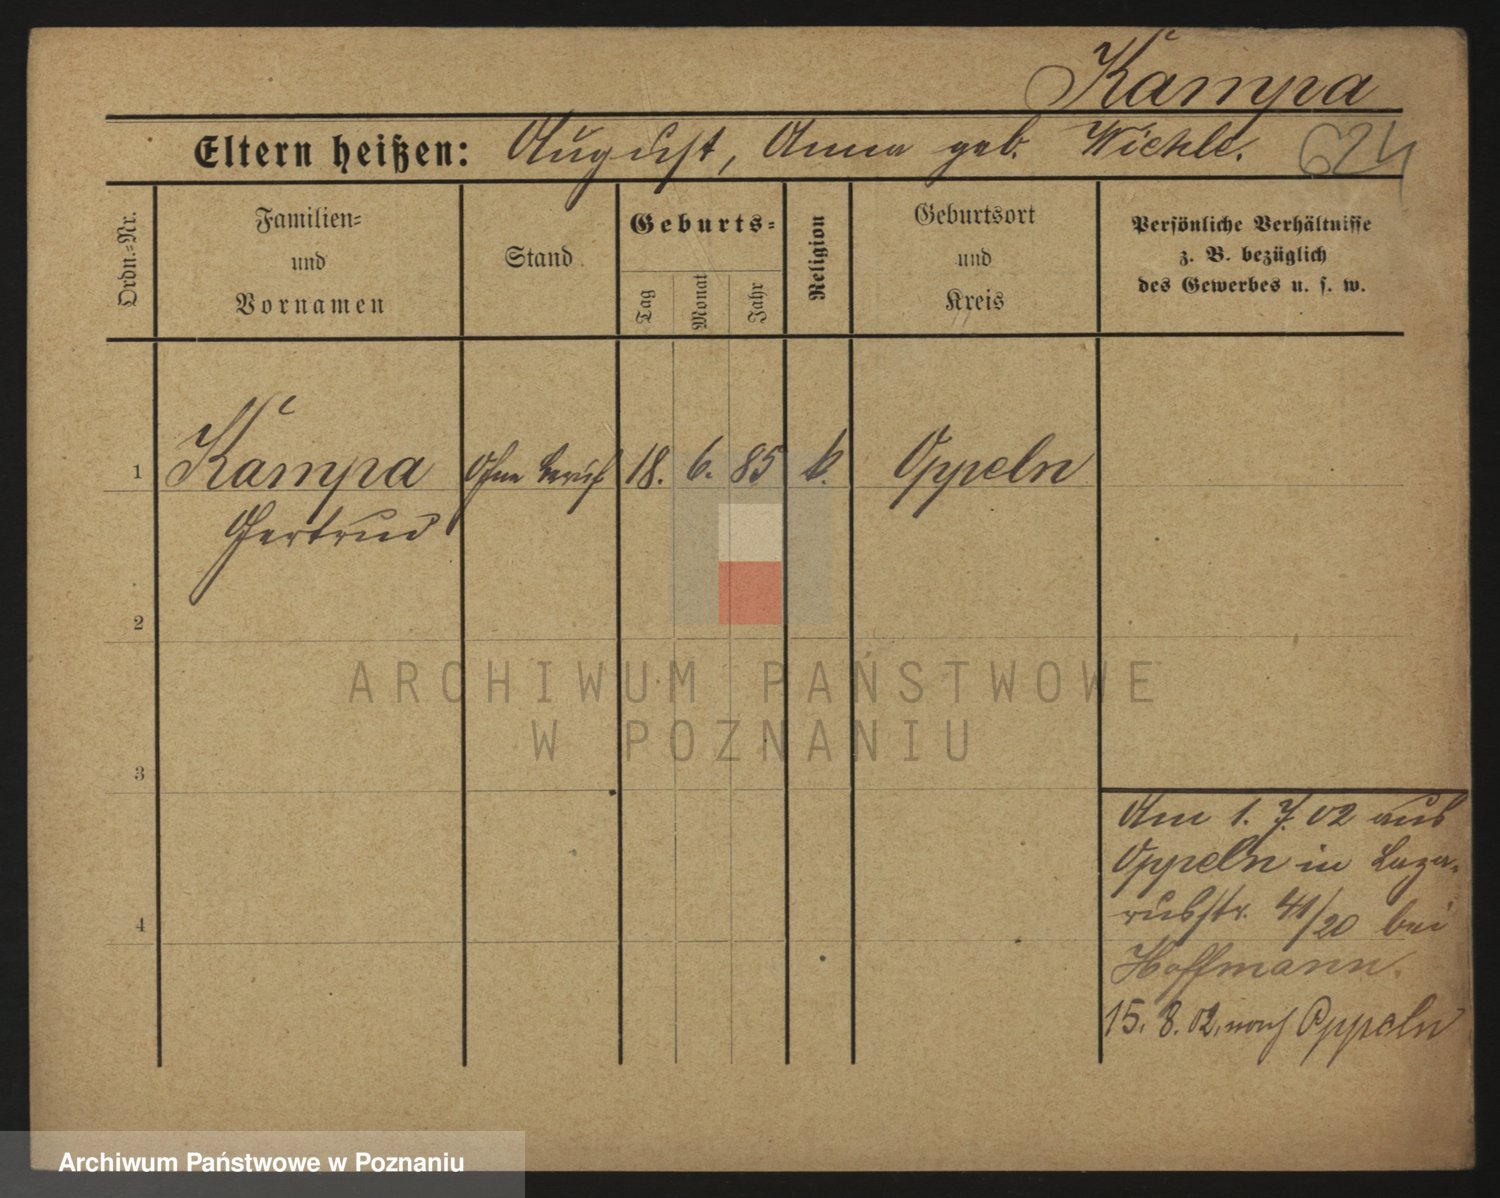 Kampa
Eltern heißen: August, Anna geb. Wichle. 624
Ordn.=Nr.
Familien=
und
Vornamen
Stand
Geburts=
Tag
Monat
Jahr
Religion
Geburtsort
und
Kreis
Persönliche Verhältnisse
z. B. bezüglich
des Gewerbes u. s. w.
1 Kampa Ohne Beruf 18. 6. 85 k. Oppeln
Gertrud
2
ARCHIWUM PAŃSTWOWE
W POZNANIU
3
Am 1. 7. 02 aus
Oppeln in Laza-
russtr. 41/20 bei
4
Hoffmann.
15. 8. 02, nach Oppeln
Archiwum Państwowe w Poznaniu